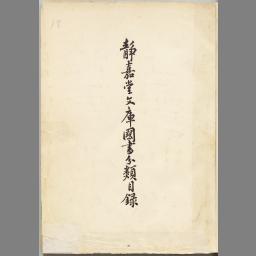 靜嘉堂文庫圖書分類目錄